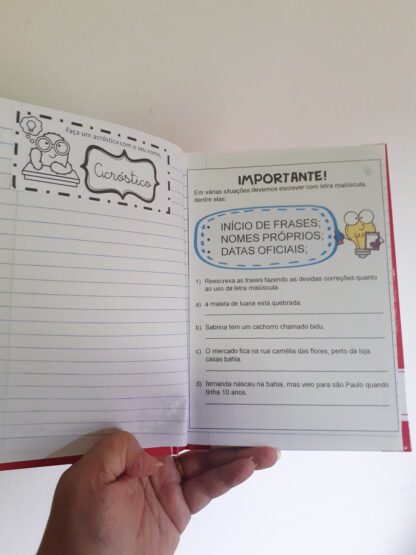 Faça um acróstico com o seu nome.
Acróstico
IMPORTANTE!
Em várias situações devemos escrever com letra maiúscula,
dentre elas:
• INÍCIO DE FRASES;
• NOMES PRÓPRIOS;
• DATAS OFICIAIS;
1) Reescreva as frases fazendo as devidas correções quanto
ao uso da letra maiúscula.
a) a maleta de luana está quebrada.
b) Sabrina tem um cachorro chamado bidu.
c) O mercado fica na rua camélia das flores, perto da loja
casas bahia.
d) fernanda nasceu na bahia, mas veio para são Paulo quando
tinha 10 anos.